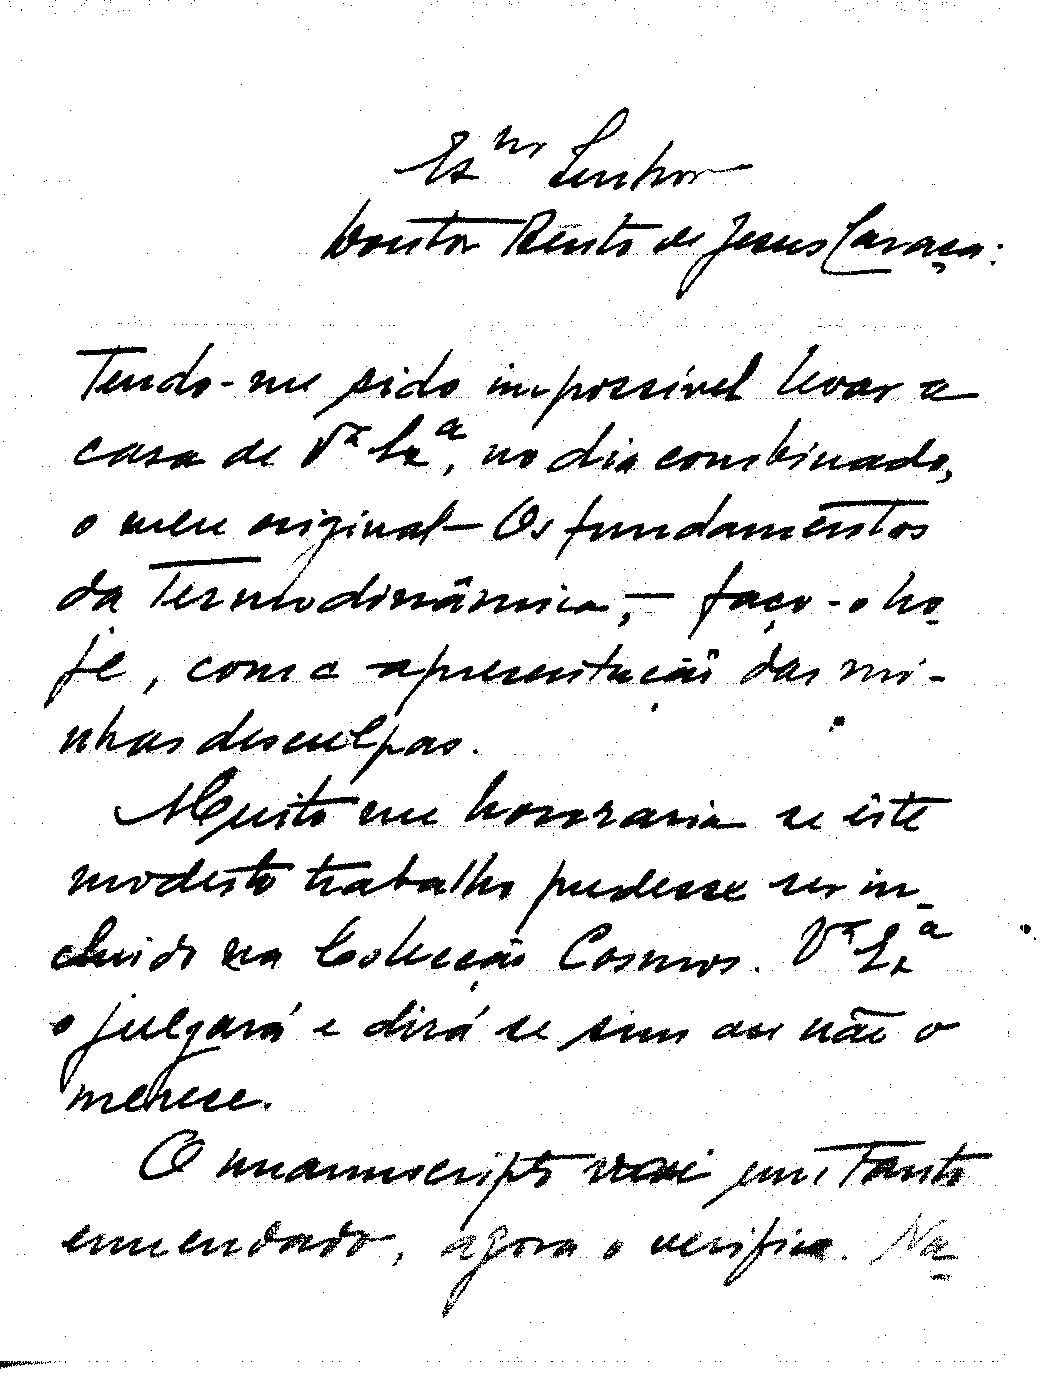 Ex.mo Senhor
Doutor Bento de Jesus Caraça:
Tendo-me sido impossível levar a
casa de V.a Ex.a, no dia combinado,
o meu original — Os fundamentos
da Termodinâmica, — faço-o ho-
je, com a apresentação das mi-
nhas desculpas.
Muito me honraria se êste
modesto trabalho pudesse ser in-
cluido na Colecção Cosmos. V.a Ex.a
o julgará e dirá se sim ou não o
merece.
O manuscripto vai um tanto
emendado, agora o verifico. Na-